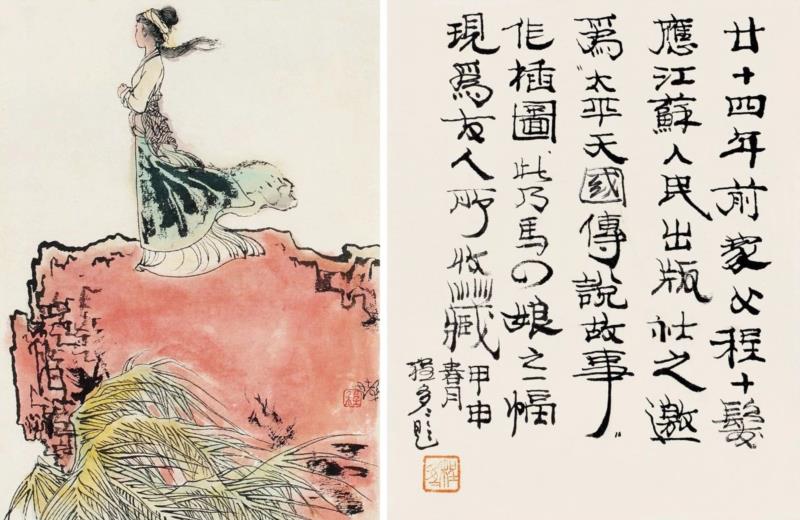 廿十四年前家父程十髮
應江蘇人民出版社之邀
爲“太平天國傳說故事”
作插圖此乃馬四娘之一幅
現爲友人所收藏
甲申
春月
程多々題